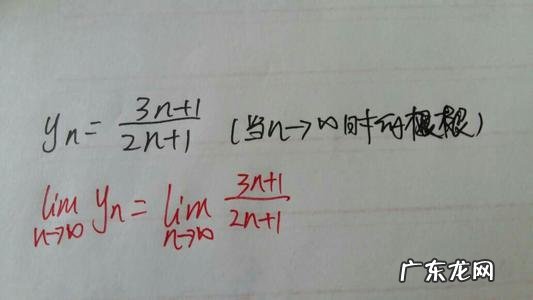 yn = (3n+1)/(2n+1) (当n→∞时的
lim n→∞ yn = lim n→∞ (3n+1)/(2n+1)
广东龙网